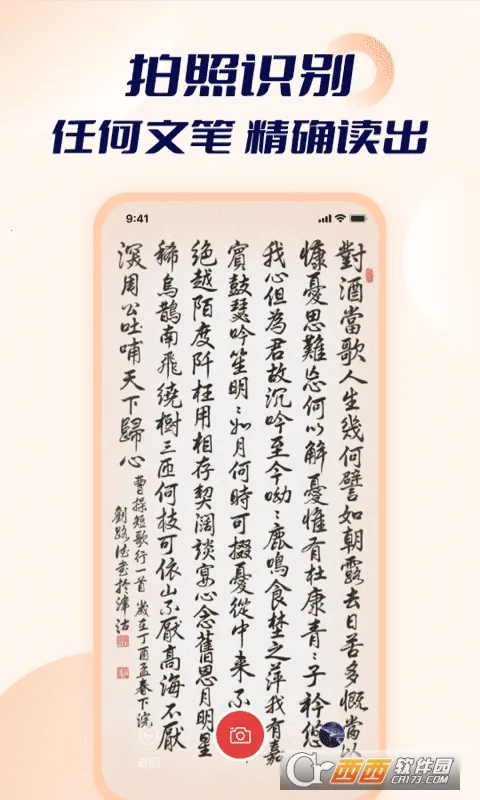 拍照识别
任何文笔 精确读出
9:41
對酒當歌人生幾何譬如朝露去日苦多慨當以
慷憂思難忘何以解憂惟有杜康青〻子衿悠
我心但為君故沉吟至今呦〻鹿鳴食埜之萍我有嘉
賓鼓瑟吹笙明〻如月何時可掇憂從中来不
絕越陌度阡枉用相存契闊談宴心念舊恩月明星
稀烏鵲南飛繞樹三匝何枝可依山不厭高海不厭
深周公吐哺天下歸心
曹操短歌行一首 歲在丁酉孟春下浣
劉路德書於津沽
返回
西西软件园
CR173.COM